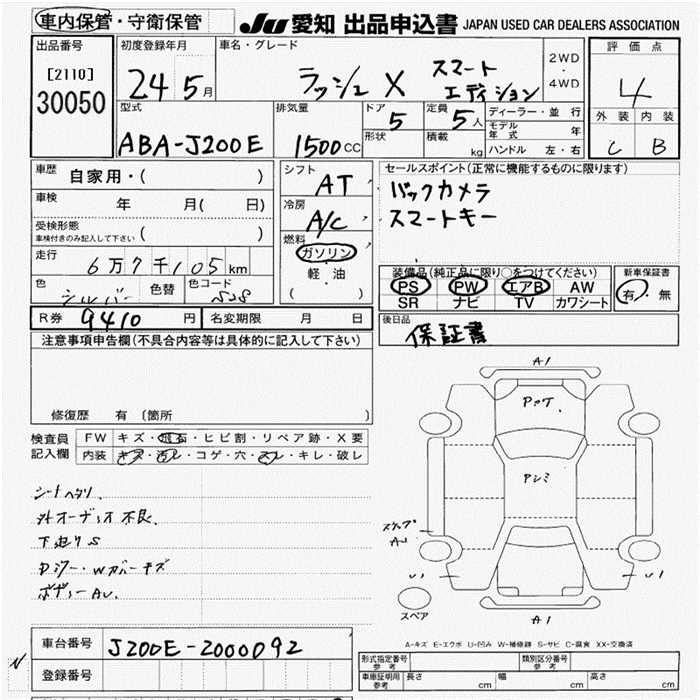 車内保管・守衛保管
JU 愛知 出品申込書 JAPAN USED CAR DEALERS ASSOCIATION
出品番号
[2110]
30050
初度登録年月
24 5月
車名・グレード
ラッシュ X スマートエディション
2WD・4WD
評価点
4
外装 内装
C B
型式
ABA-J200E
排気量
1500CC
ドア 5
形状
定員 5人
積載 kg
ディーラー・並行
モデル年式 年
ハンドル 左・右
車歴 自家用・( )
車検 年 月( 日)
受検形態
車検付きのみ記入して下さい ( )
走行 6万7千105km
色 シルバー 色替 色コード S28
シフト AT
冷房 A/C
燃料 ガソリン
軽・油
( )
セールスポイント(正常に機能するものに限ります)
バックカメラ
スマートキー
装備品(純正品に限り○をつけてください)
PS PW エアB AW
SR ナビ TV カワシート
新車保証書
有・無
R券 9410円 名変期限 月 日
後日品
保証書
注意事項申告欄(不具合内容等は具体的に記入して下さい)
修復歴 有(箇所 )
検査員記入欄
FW キズ・飛石・ヒビ割・リペア跡・X要
内装 キズ・汚レ・コゲ・穴・スレ・キレ・破レ
シートヘタリ
外オーディオ不良.
下廻りS
Dミラー・Wカバーキズ
ボディーAU.
A1
Pアゲ.
Pシミ
AU
U1
U1
A1
スペア
A-キズ E-エクボ U-凹み W-補修跡 S-サビ C-腐食 XX-交換済
車台番号 J200E-2000092
登録番号
型式指定番号 参考
類別区分番号 参考
車庫証明用 参考 長さ cm 幅 cm 高さ cm